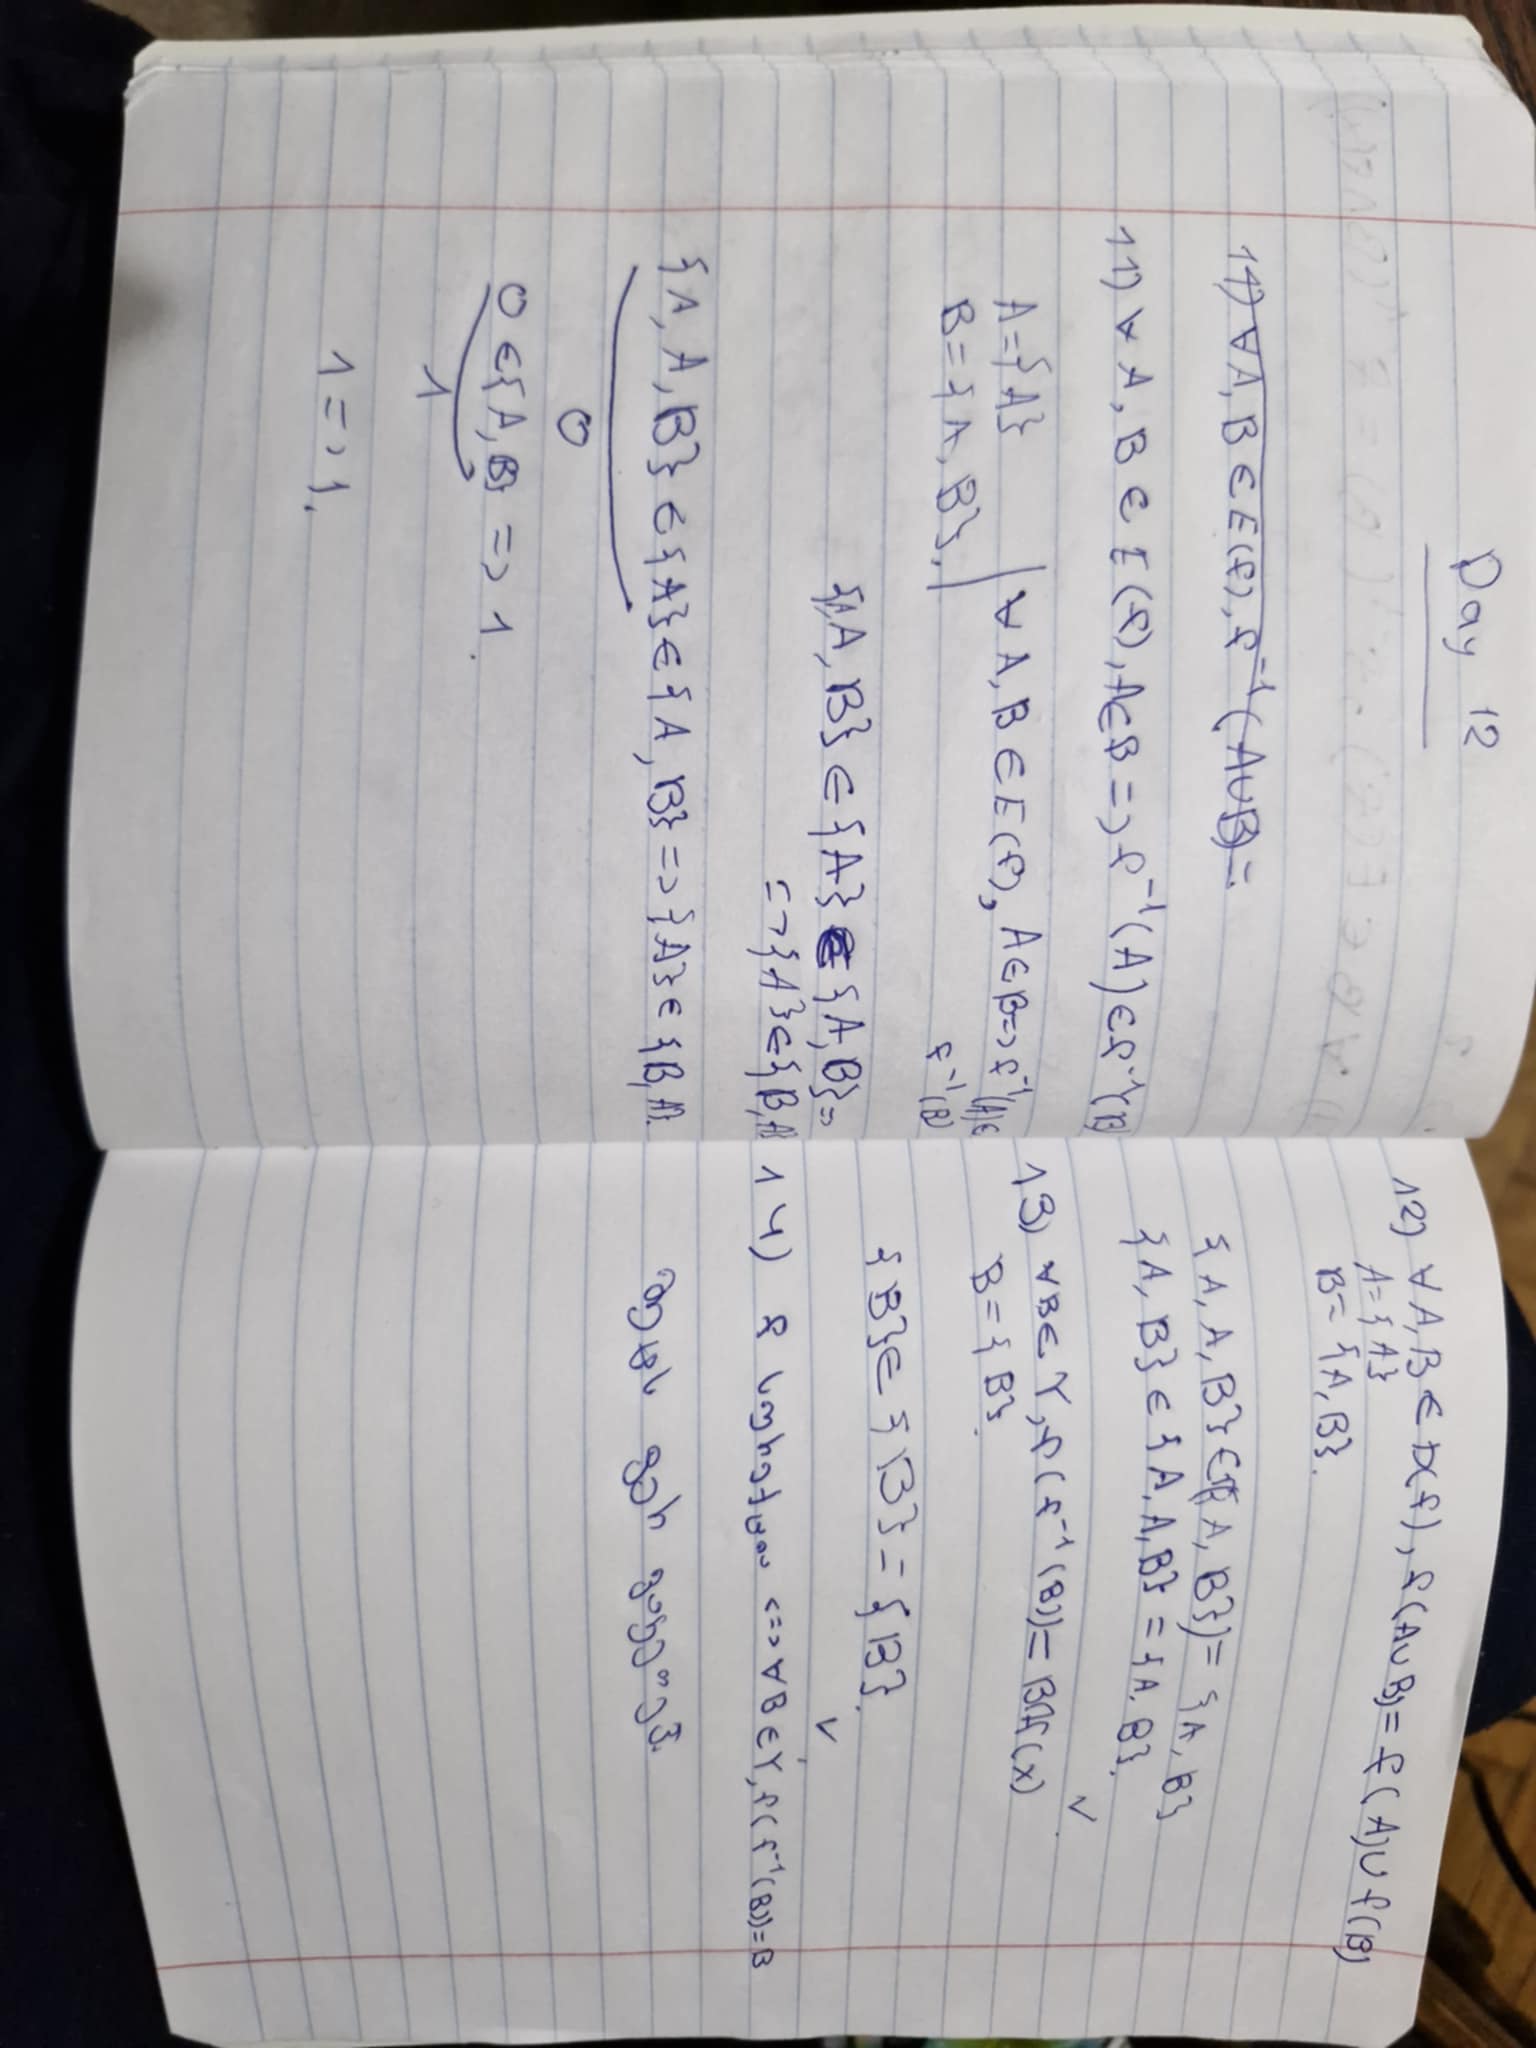 Day 12
11) ∀A, B ∈ E(f), f⁻¹(A∪B)=
11) ∀ A, B ∈ E(f), A∈B => f⁻¹(A)∈f⁻¹(B)
A={A}
B={A, B}. | ∀ A, B ∈ E(f), A∈B=> f⁻¹(A)∈
f⁻¹(B)
{A, B} ∈ {A} ∈ {A, B}=>
=>{A}∈{B, A}
{A, A, B} ∈ {A} ∈ {A, B} => {A} ∈ {B, A}.
0
0 ∈{A, B} => 1.
1
1 => 1.
12) ∀ A, B ∈ D(f), f(A∪B)= f(A)∪f(B)
A={A}
B={A, B}.
{A, A, B} ∈ {A, B})= {A, B}
{A, B} ∈ {A, A, B} = {A, B}.
13) ∀B∈Y, f(f⁻¹(B))= B∩f(X)
B={B}.
{B}∈{B} = {B}.
14) f <=> ∀B∈Y, f(f⁻¹(B))=B
ვერ